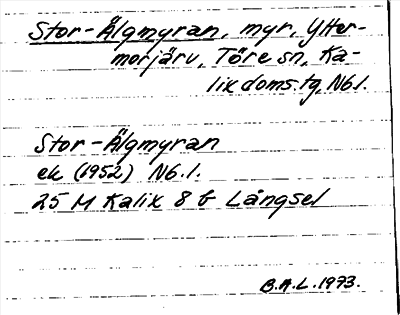 Stor-Älgmyran, myr, Ytter-
morjärv, Töre sn, Ka-
lix doms.tg, Nb.l.
Stor-Älgmyran
ek (1952) Nb.l.
25 M Kalix 8 b Långsel
B.A.L. 1973.